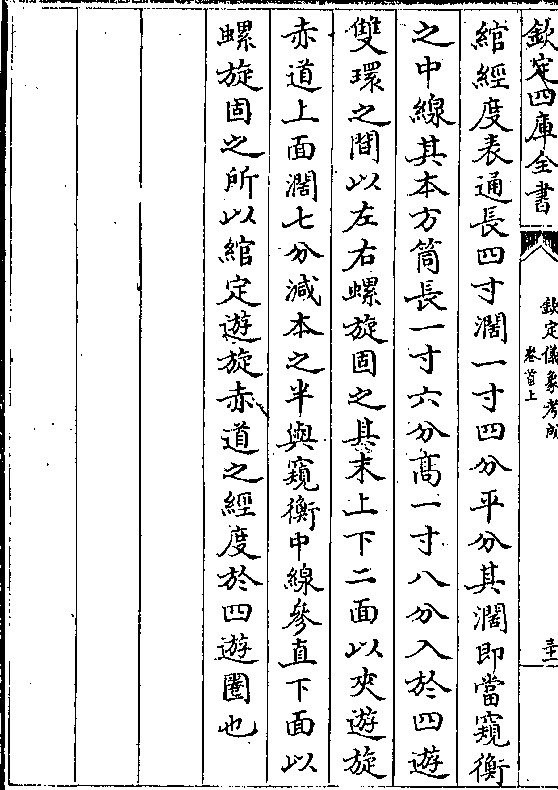 欽定四庫全書
欽定儀象考成
卷首上
綰經度表通長四寸濶一寸四分平分其濶即當窺衡
之中線其本方筒長一寸六分高一寸八分入於四遊
雙環之間以左右螺旋固之其末上下二面以夾遊旋
赤道上面濶七分減本之半與窺衡中線參直下面以
螺旋固之所以綰定遊旋赤道之經度於四遊圈也